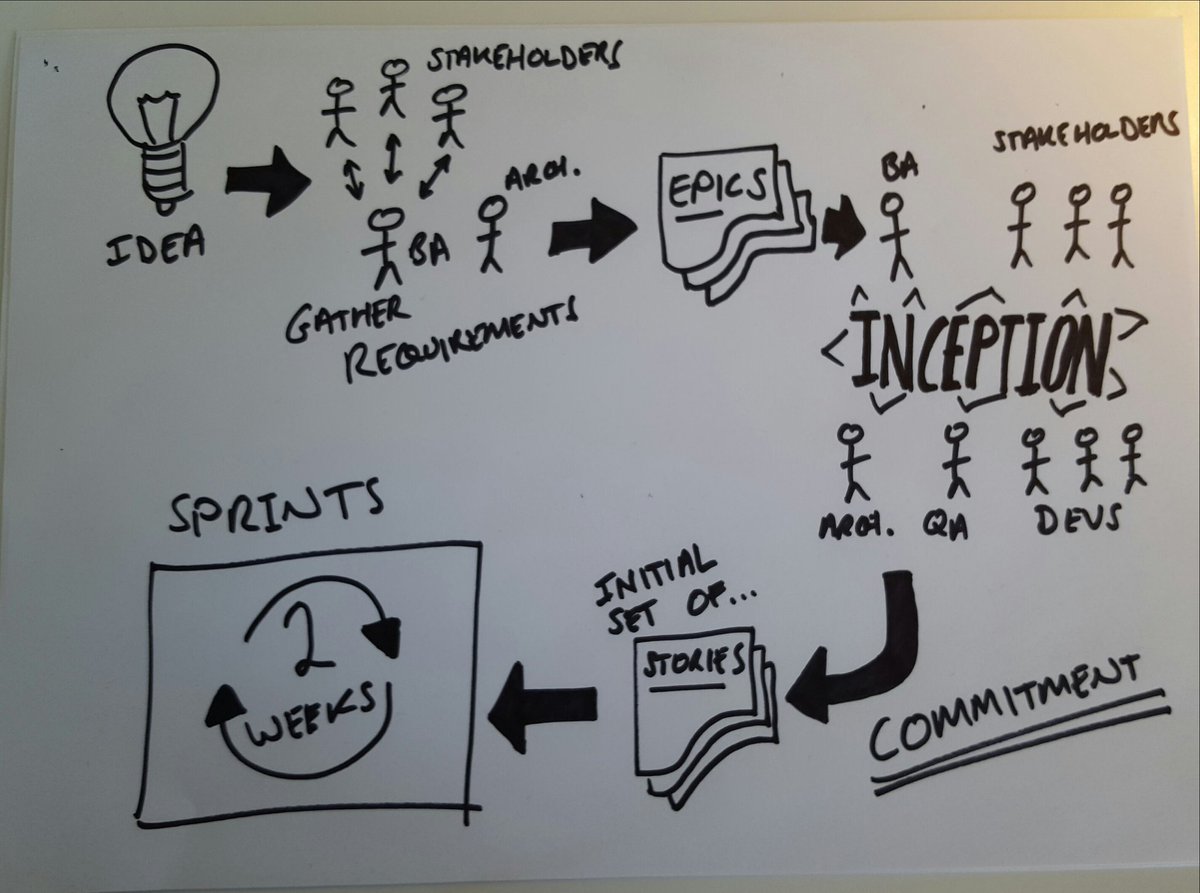 STAKEHOLDERS
IDEA
ARCH.
BA
GATHER
REQUIREMENTS
EPICS
BA
STAKEHOLDERS
INCEPTION
ARCH.
QA
DEVS
COMMITMENT
INITIAL
SET OF...
STORIES
SPRINTS
2
WEEKS